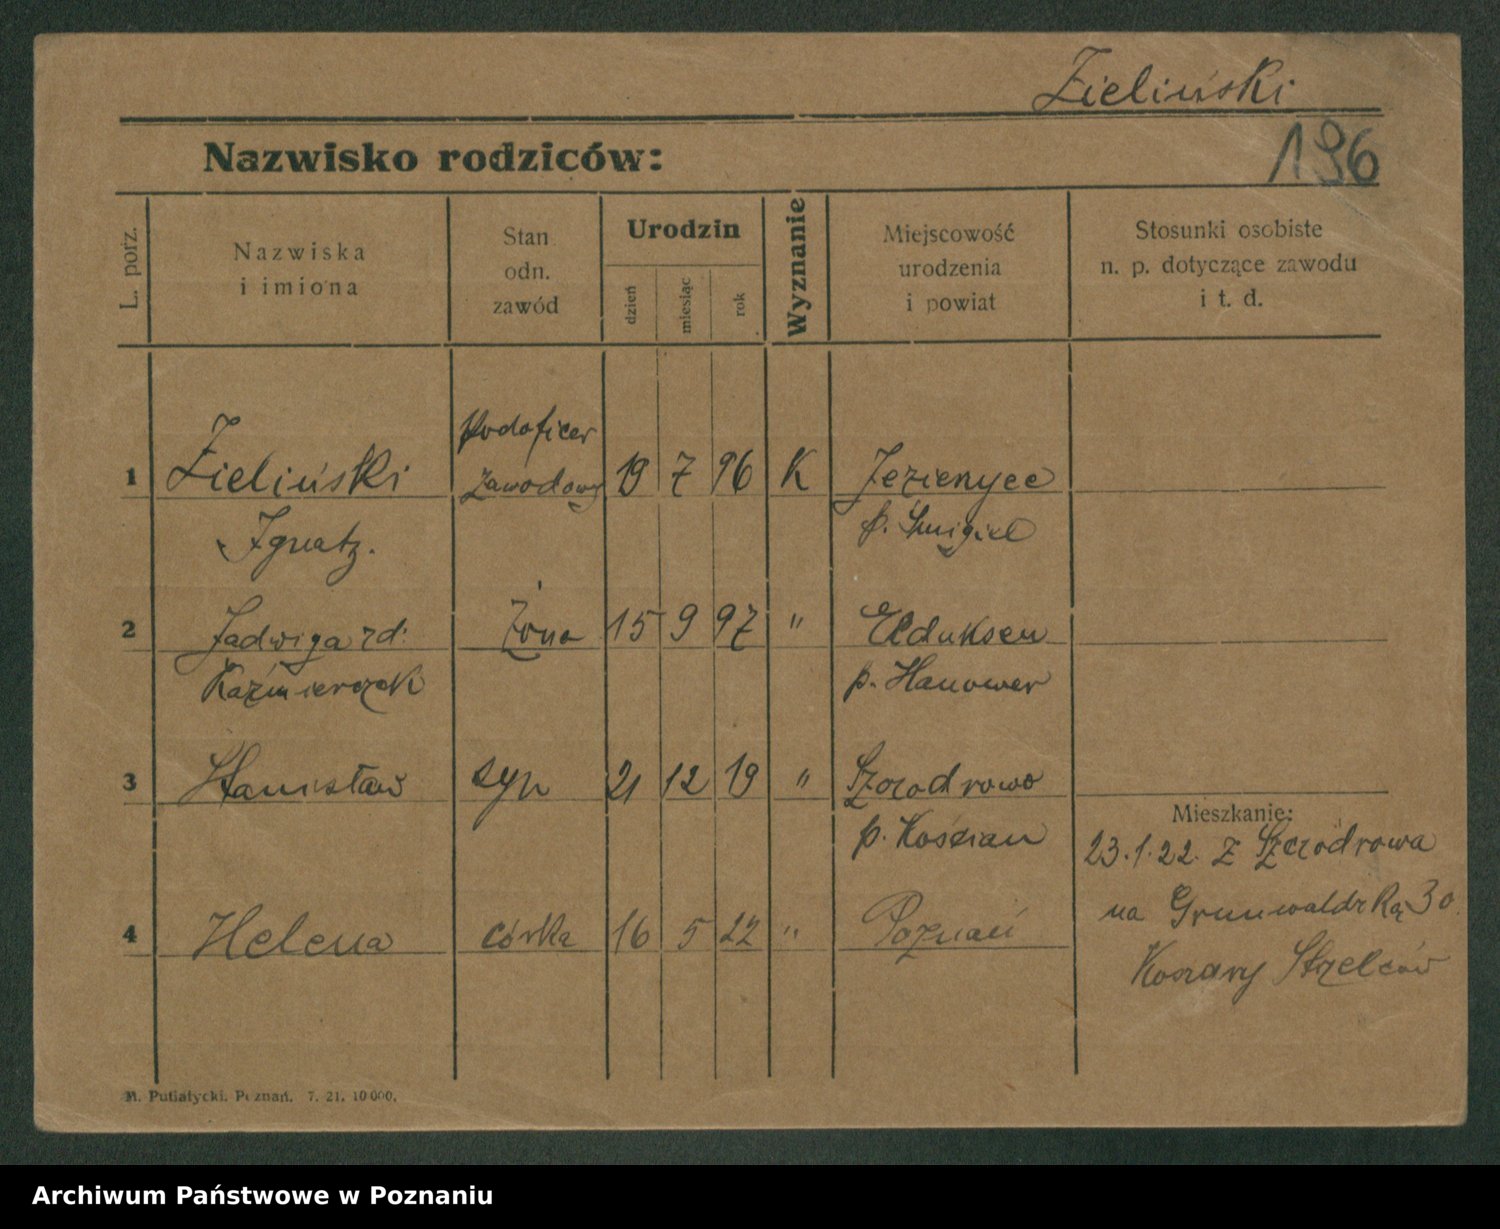 Zieliński
Nazwisko rodziców:
196
L. porz.
Nazwiska
i imiona
Stan
odn.
zawód
Urodzin
dzień
miesiąc
rok
Wyznanie
Miejscowość
urodzenia
i powiat
Stosunki osobiste
n. p. dotyczące zawodu
i t. d.
Podoficer
1 Zieliński zawodowy 19 7 96 K Jezierzyce
Ignatz. p. Śmigiel
2 Jadwiga rd: Żona 15 9 97 " Elduksen
Kaźmierczak p. Hanower
3 Stanisław syn 21 12 19 " Szczodrowo
p. Kościan
Mieszkanie:
23.1.22. z Szczodrowa
na Grunwaldzką 30.
4 Helena córka 16 5 22 " Poznań
Koszary Strzelców
M. Putiatycki. Poznań. 7. 21. 10000.
Archiwum Państwowe w Poznaniu